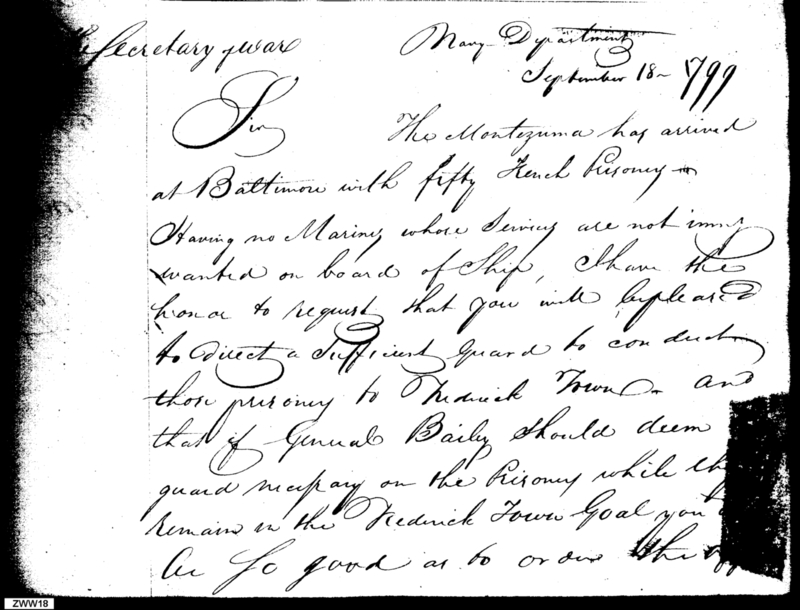 Secretary of War
Navy Department
September 18 1799
Sir The Montezuma has arrived
at Baltimore with fifty French Prisoners
Having no Marines whose Services are not imm'y
wanted on board of Ship, I have the
honor to request that you will be pleased
to direct a Sufficient guard to conduct
those prisoners to Frederick Town and
that if General Baily should deem
guard necessary on the Prisoners while they
remain in the Frederick Town Goal you
be so good as to order the
ZWW18